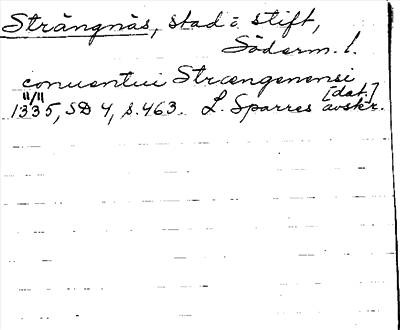 Strängnäs, stad o. stift,
Söderm. l.
conventui Strængenensi
[dat.]
11/11 1335, SD 4, s. 463. L. Sparres avskr.